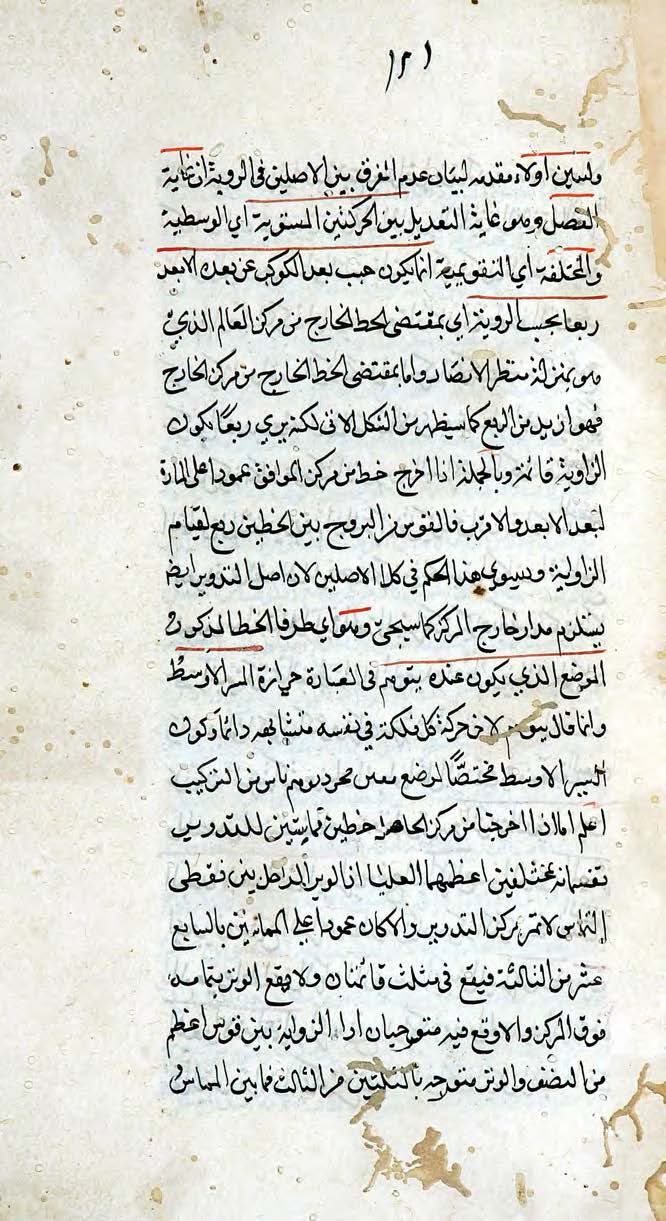 ١٢١
ولنبين اولا مقدمه لبيان عدم الفرق بين الاصلين في الروية ان غاية
الفضل وهو غاية التعديل بين الحركتين المستوية اي الوسطية
والمختلفة اي التقويمية انما يكون حيث بعد الكوكب عن بعده الابعد
ربعا بحسب الروية اي بمقتضى الخط الخارج من مركز العالم الذي
هو بمنزلة منظر الابصار واما بمقتضى الخط الخارج من مركز الخارج
فهو ازيد من الربع كما سيظهر من الشكل الاتي لكنه يري ربعا لكون
الزاوية قائمة وبالجملة اذا اخرج خط من مركز الموافق عمودا على المارة
لبعد الابعد والاقرب فالقوس من البروج بين الخطين ربع لقيام
الزاوية ويستوي هذا الحكم في كلا الاصلين لان اصل التدوير ايضا
يستلزم مدار خارج المركز كما سيجئ وهو اي طرف الخط المذكور
الموضع الذي يكون عنده يتوهم في العبارة حزازة المسير الاوسط
وانما قال يتوهم لان حركة كل فلك في نفسه متشابهه دائما وكون
السير الاوسط مختصًّا لموضع معين مجرد توهم ناش من التركيب
اعلم انا اذا اخرجنا من مركز خطين مماسين للتدوير
بمختلفين اعظمهما العليا اذ الوتر الداخل بين نقطتي
التماس لا تمر بمركز التدوير والا كان عمودا على المماسين بالسابع
عشر من الثالثة فيقع في مثلث قائمتان ولا يقع الوتر بتمامه
فوق المركز والا وقع فيه منفرجتان اذ الزواية بين قوس اعظم
من النصف والوتر منفرجه بالثلثين من الثالث فما بين المماس